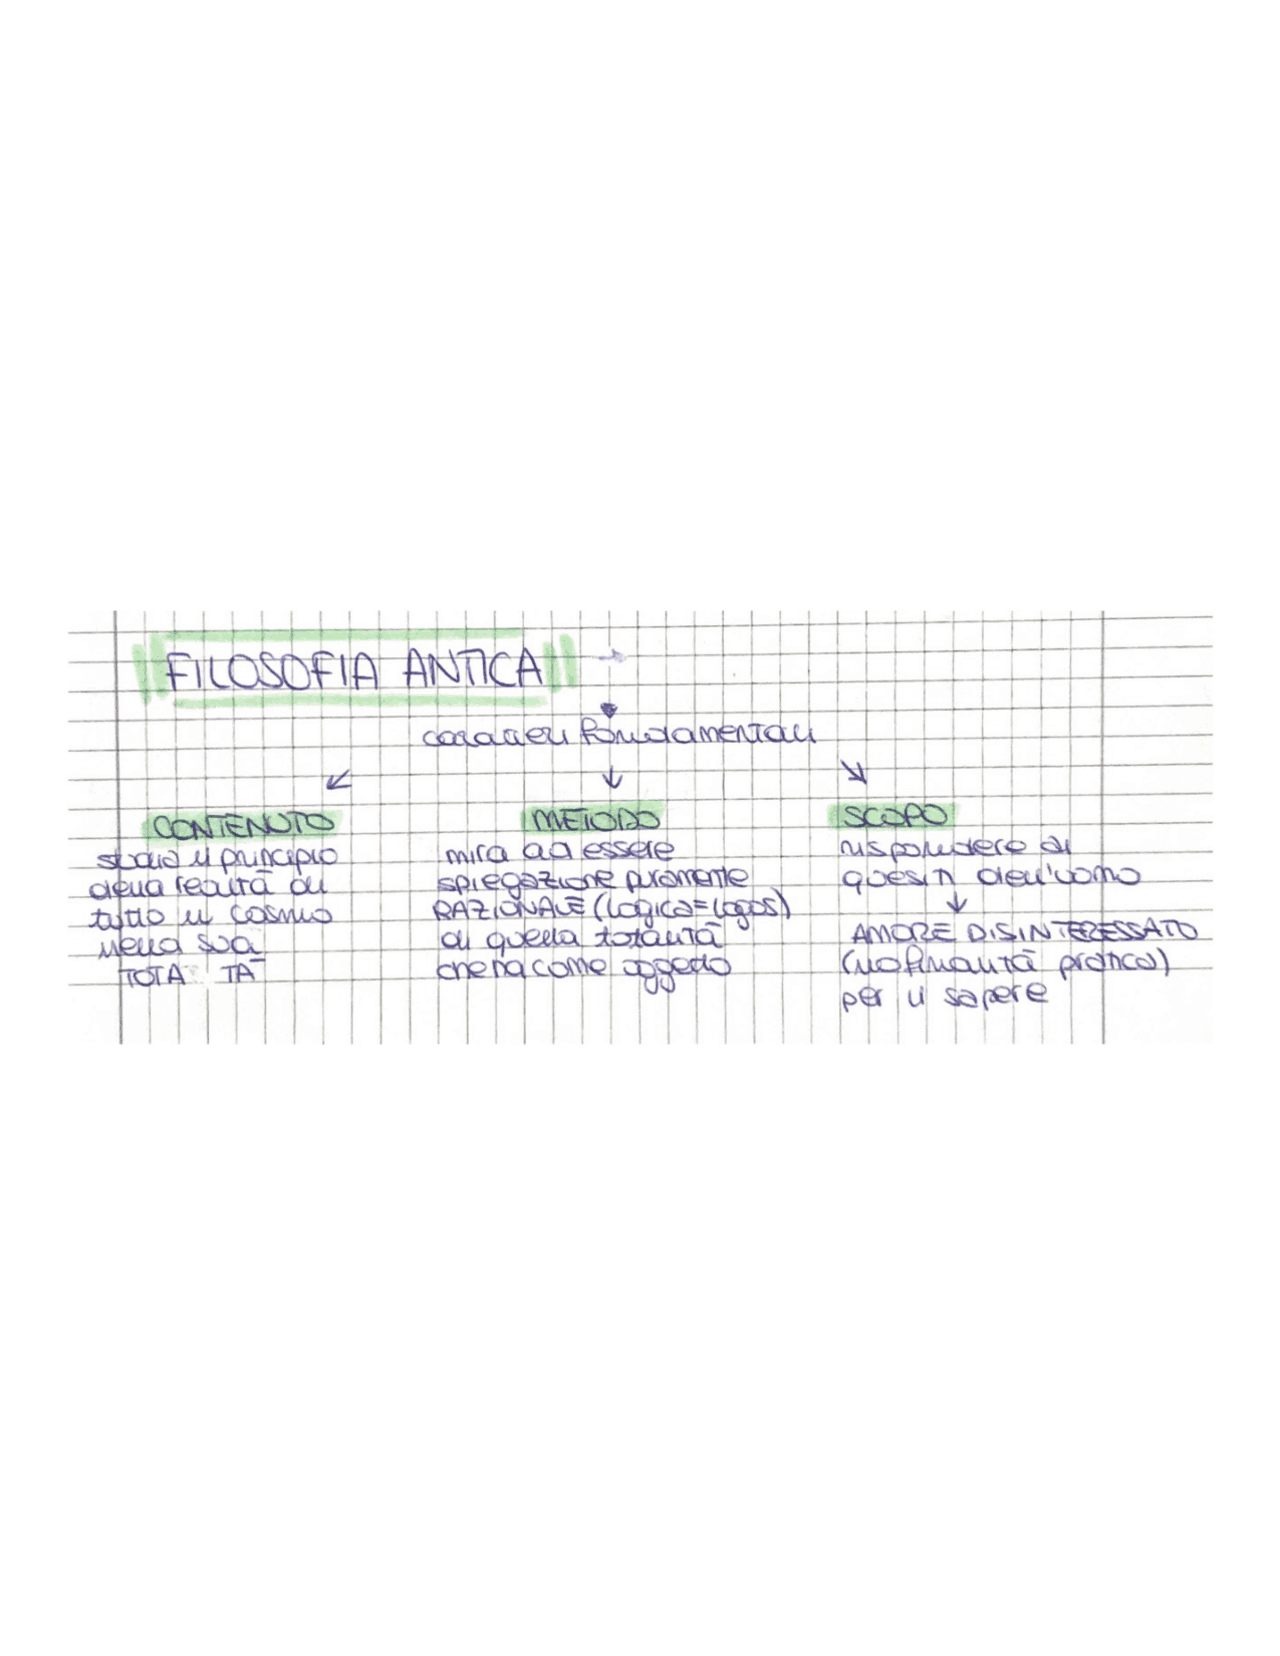 FILOSOFIA ANTICA →
caratteri fondamentali
CONTENUTO
studia il principio
della realtà di
tutto il cosmo
nella sua
TOTA TĀ
METODO
mira ad essere
spiegazione puramente
RAZIONALE (logica=logos)
di quella totalità
che ha come oggetto
SCOPO
rispondere ai
quesiti dell'uomo
↓
AMORE DISINTERESSATO
(no finalità pratica)
per il sapere